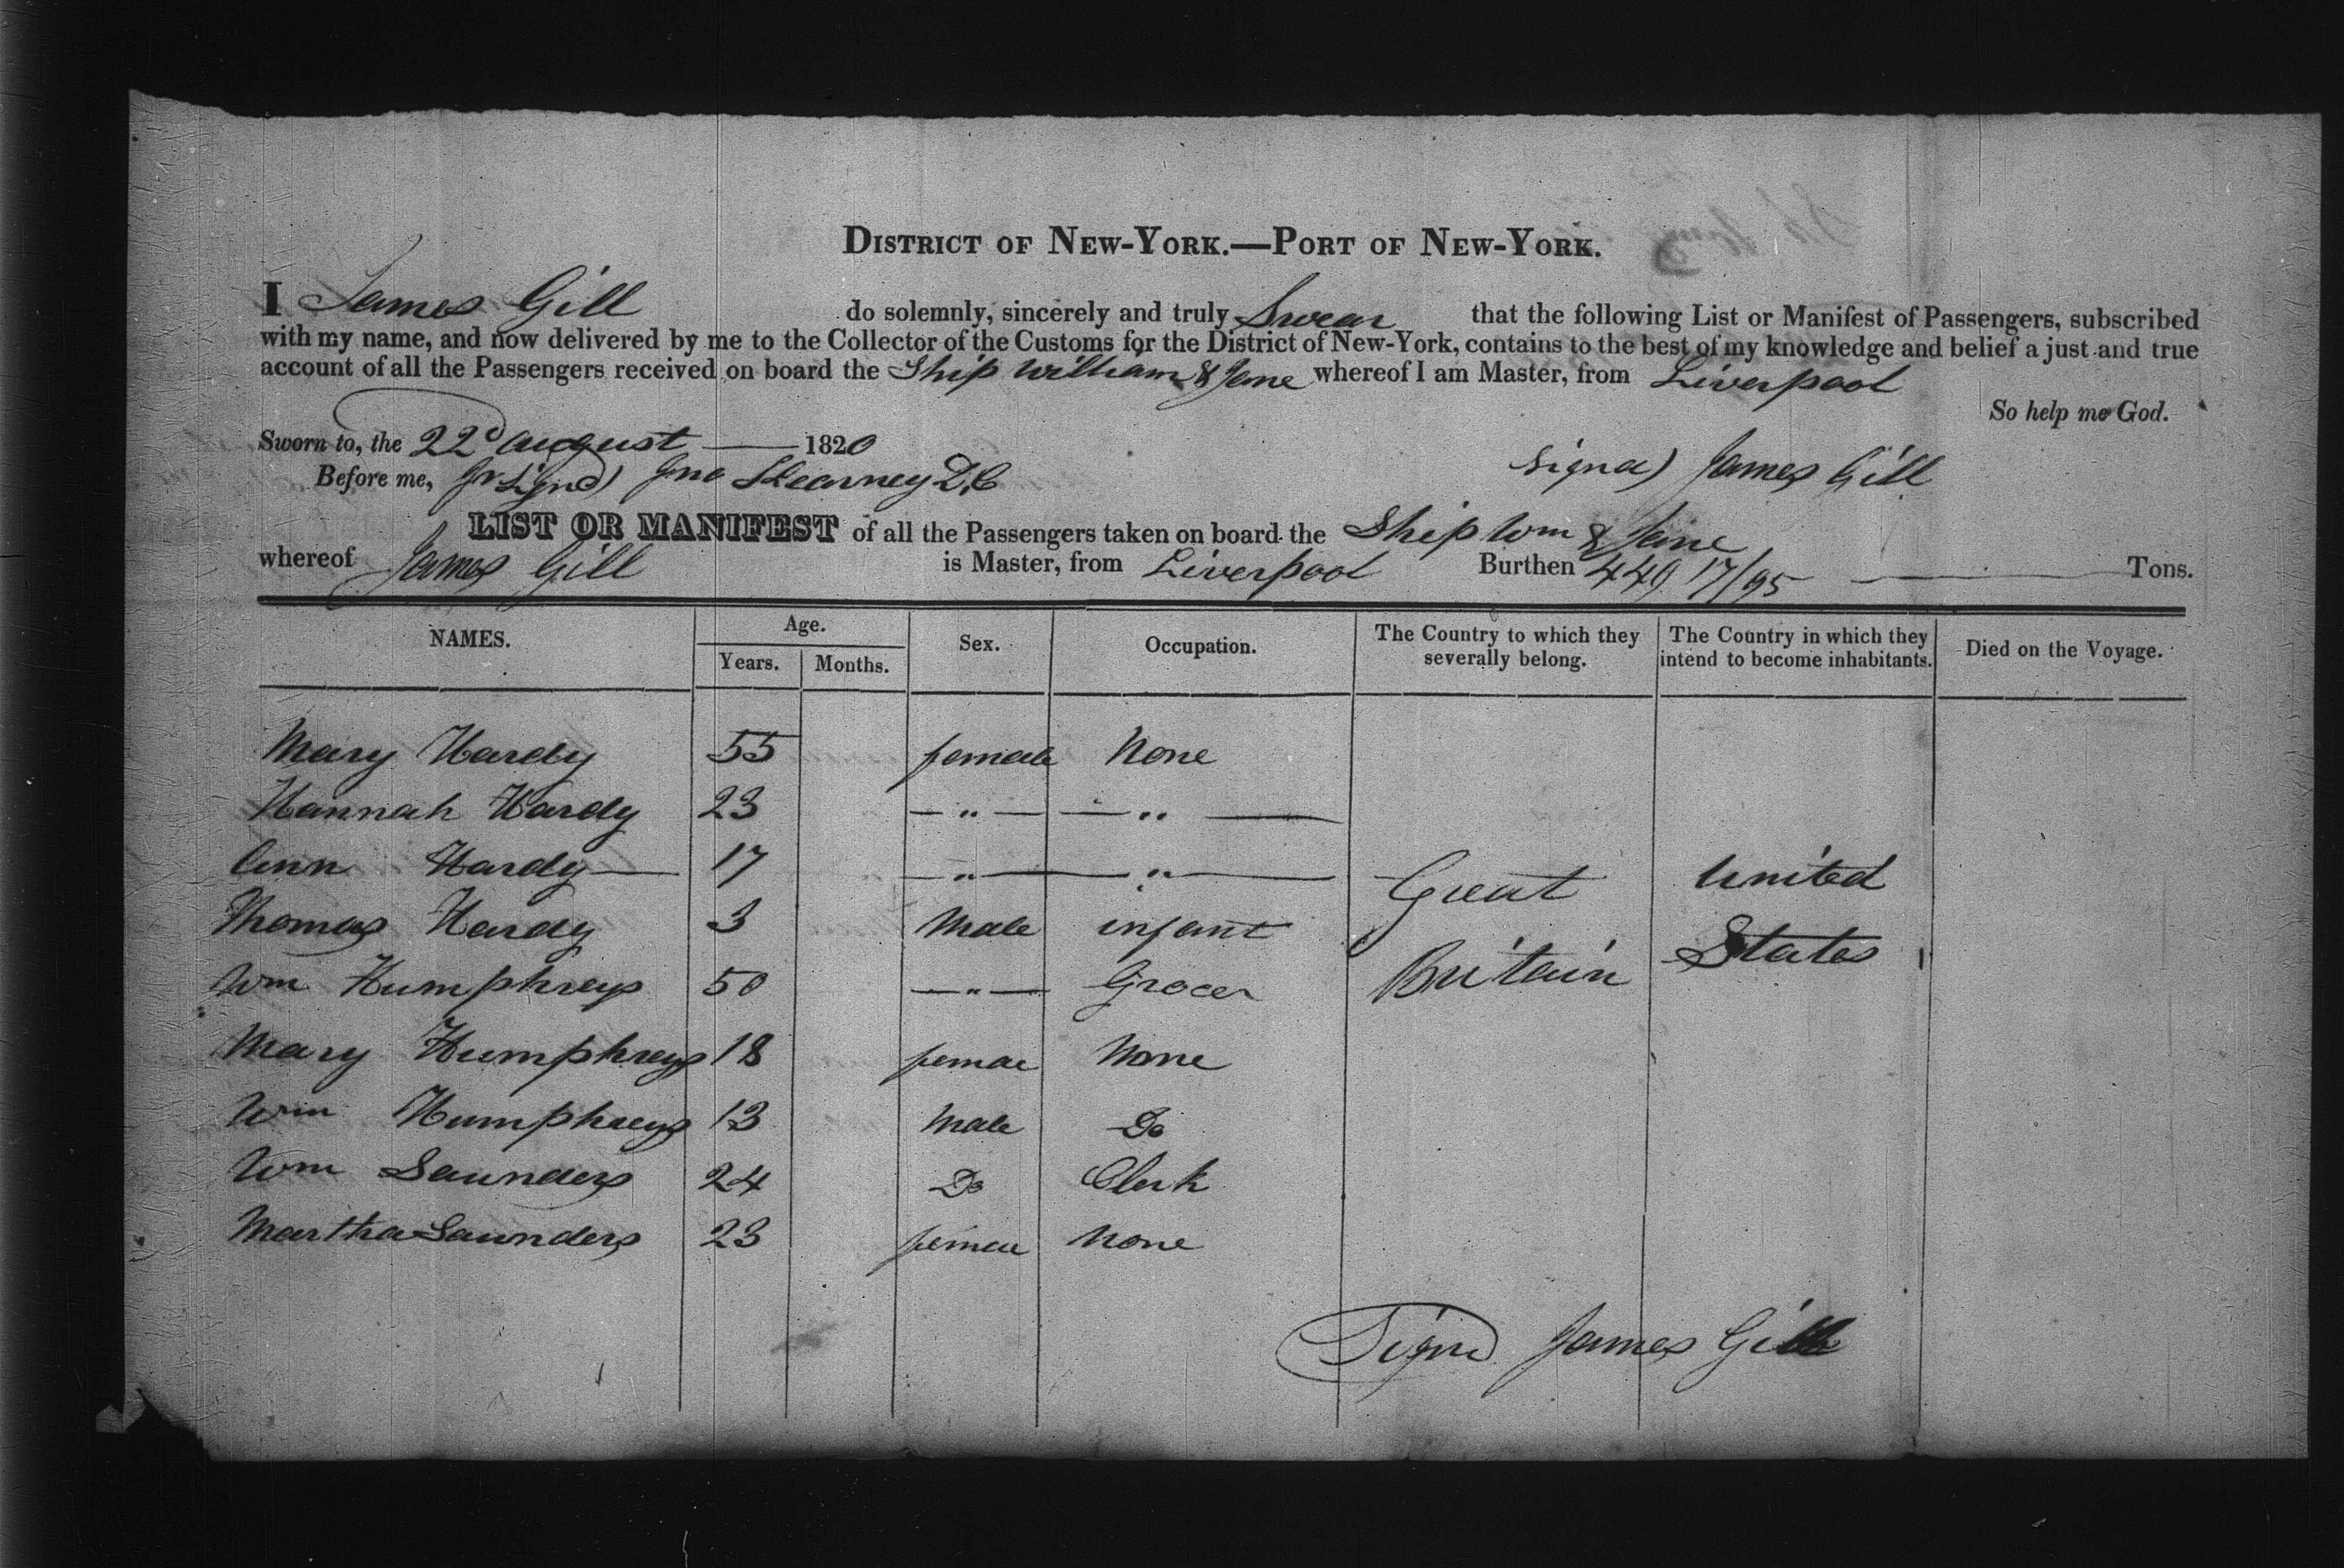 DISTRICT OF NEW-YORK.—PORT OF NEW-YORK.
I James Gill do solemnly, sincerely and truly Swear that the following List or Manifest of Passengers, subscribed
with my name, and now delivered by me to the Collector of the Customs for the District of New-York, contains to the best of my knowledge and belief a just and true
account of all the Passengers received on board the Ship William & Jane whereof I am Master, from Liverpool
So help me God.
Sworn to, the 22d august — 1820
Before me, Signd) Jno Skearney D,C Signd) James Gill
LIST OR MANIFEST of all the Passengers taken on board the Ship Wm & Jane
whereof James Gill is Master, from Liverpool Burthen 449 17/95 — Tons.
NAMES. Age. Years. Months. Sex. Occupation. The Country to which they severally belong. The Country in which they intend to become inhabitants. Died on the Voyage.
Mary Hardy 55 female None
Hannah Hardy 23 — " — — " —
Ann Hardy — 17 — " — — " —
Thomas Hardy 3 Male infant Great United
Wm Humphreys 50 — " — Grocer Britain States
Mary Humphreys 18 femae None
Wm Humphreys 13 Male Do
Wm Saunders 24 Do Clerk
Martha Saunders 23 femae None
Signd James Gill